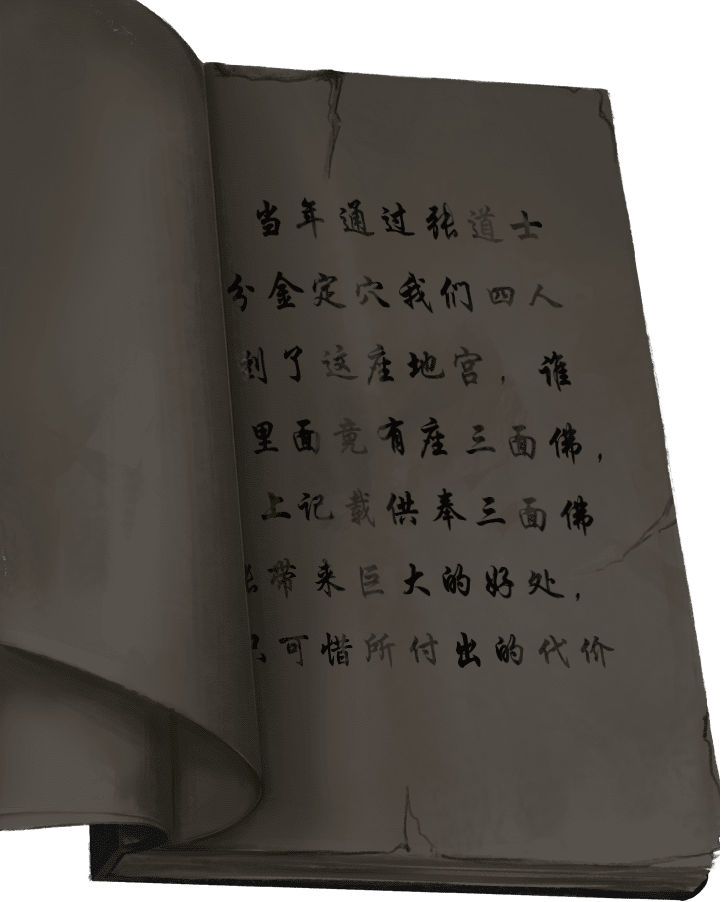 当年通过张道士
分金定穴我们四人
到了这座地宫，谁
里面竟有座三面佛，
上记载供奉三面佛
带来巨大的好处，
可惜所付出的代价